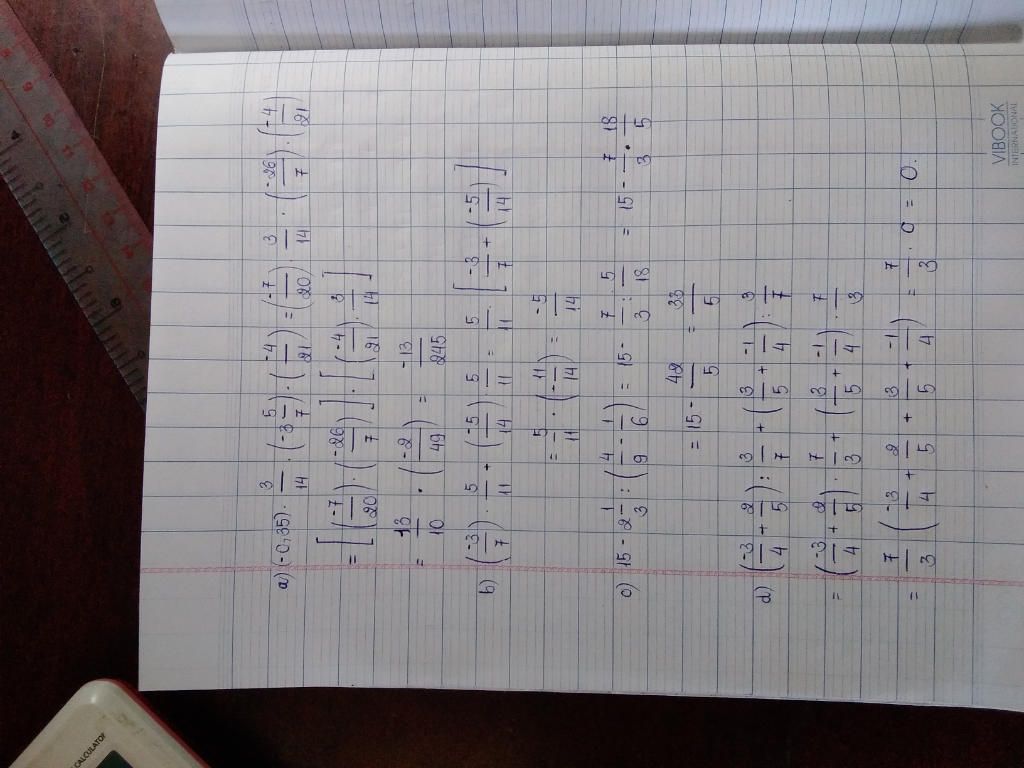 a) (-0,35) . 3/14 . (-3 5/7) . (-4/21) = (-7/20) . 3/14 . (-26/7) . (-4/21)
= [(-7/20) . (-26/7)] . [(-4/21) . 3/14]
= 13/10 . (-2/49) = -13/245
b) (-3/7) . 5/11 + (-5/14) . 5/11 = 5/11 . [-3/7 + (-5/14)]
= 5/11 . (-11/14) = -5/14
c) 15 - 2 1/3 : (4/9 - 1/6) = 15 - 7/3 : 5/18 = 15 - 7/3 . 18/5
= 15 - 42/5 = 33/5
d) (-3/4 + 2/5) : 3/7 + (3/5 + -1/4) : 3/7
= (-3/4 + 2/5) . 7/3 + (3/5 + -1/4) . 7/3
= 7/3 (-3/4 + 2/5 + 3/5 + -1/4) = 7/3 . 0 = 0.
VIBOOK
INTERNATIONAL
CALCULATOR